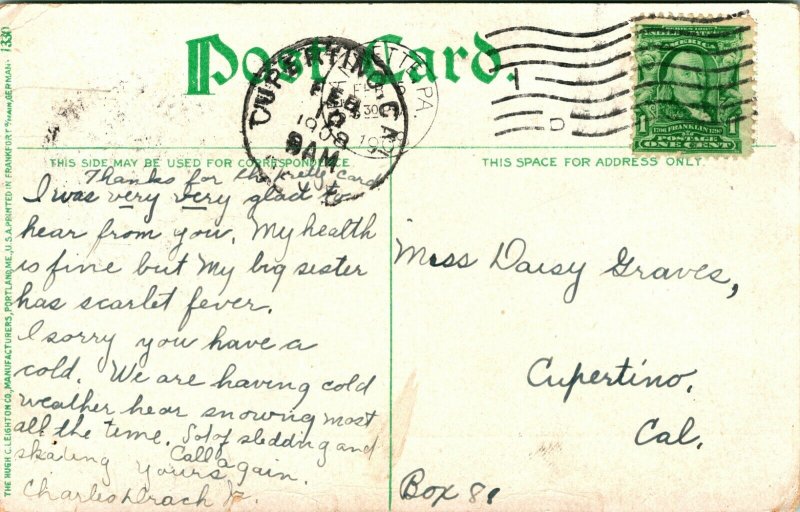 Post Card.
CUPERTINO, CAL.
FEB
10
1908
8AM
1
D
AMERICA
1706 FRANKLIN 1790
POSTAGE
1 ONE CENT 1
THIS SIDE MAY BE USED FOR CORRESPONDENCE
THIS SPACE FOR ADDRESS ONLY.
Thanks for the pretty card
I was very very glad to
hear from you. My health
is fine but My big sister
has scarlet fever.
I sorry you have a
cold. We are having cold
weather hear snowing most
all the time. Lot of sledding and
skating
Call again.
yours
Charles Drach Jr.
Miss Daisy Graves,
Cupertino.
Cal.
Box 81
THE HUGH C. LEIGHTON CO., MANUFACTURERS, PORTLAND, ME., U.S.A. PRINTED IN FRANKFORT o/MAIN, GERMANY
1330